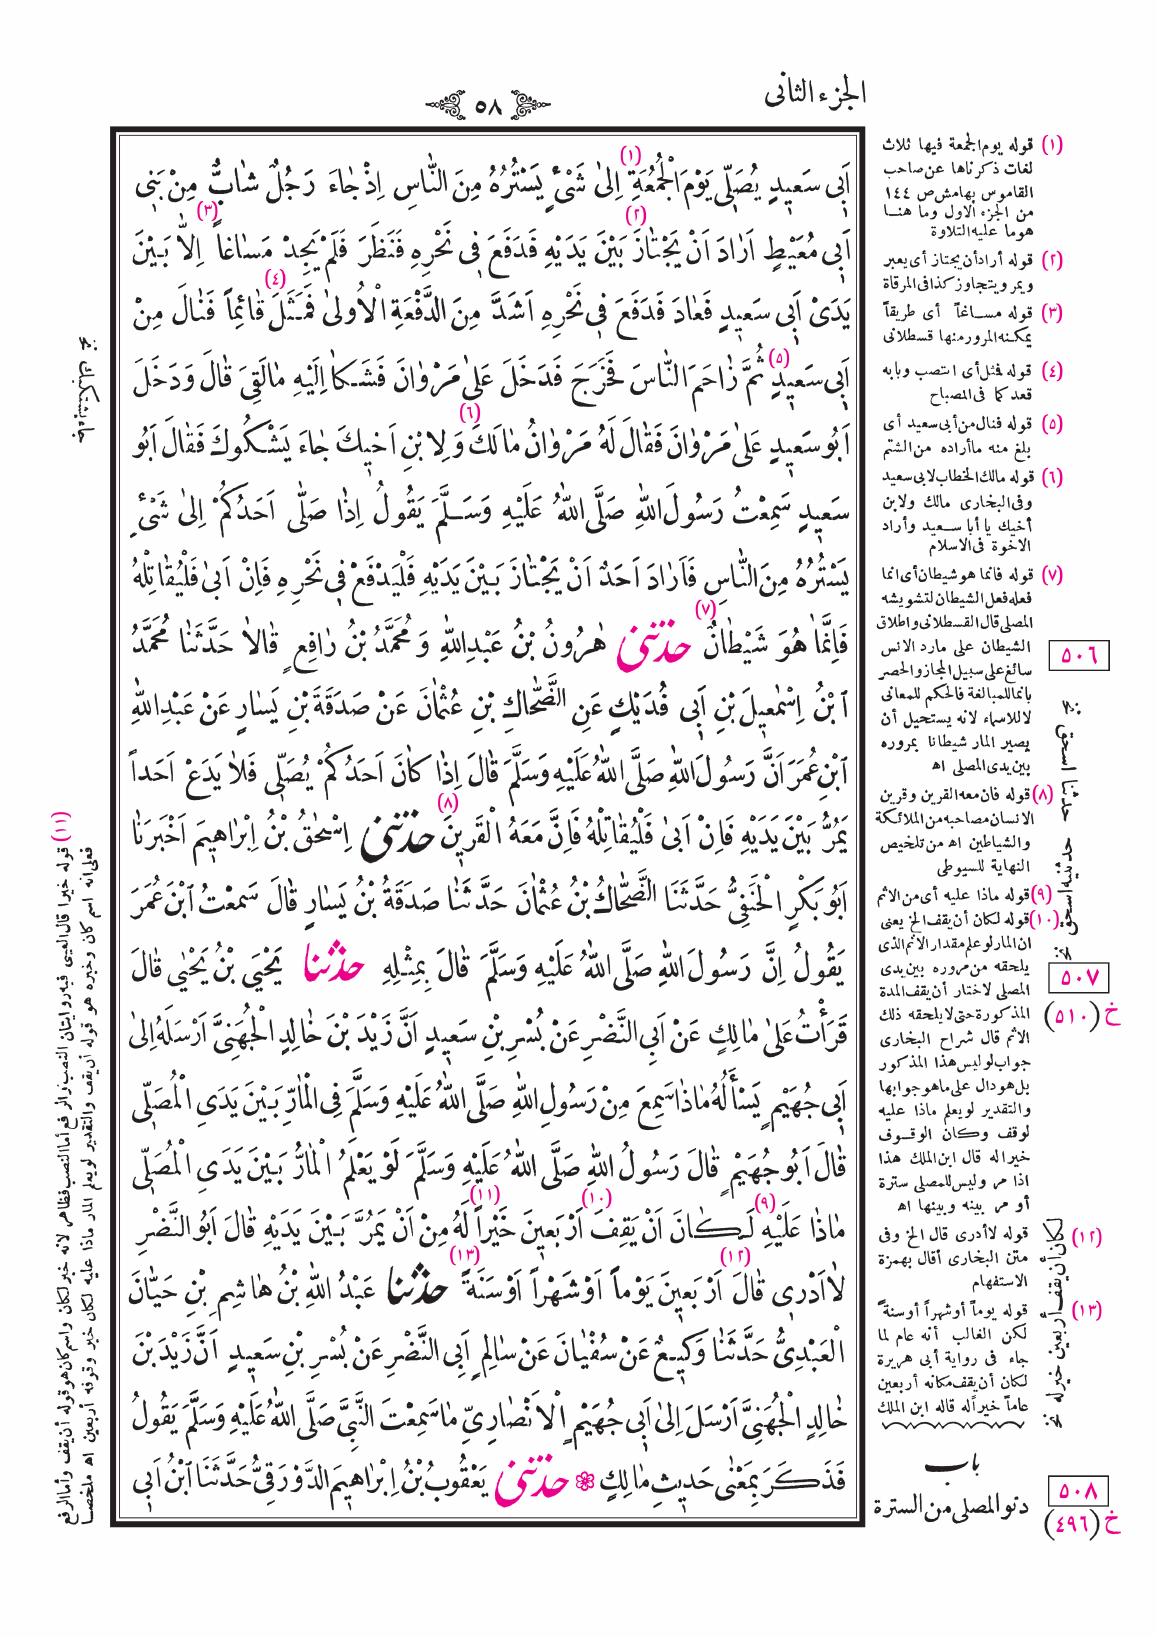 الجزء الثانى
٥٨
اَبِى سَعِيدٍ يُصَلِّى يَوْمَ الْجُمُعَةِ (١) اِلٰى شَىْءٍ يَسْتُرُهُ مِنَ النَّاسِ اِذْ جَاءَ رَجُلٌ شَابٌّ مِنْ بَنِى
اَبِى مُعَيْطٍ اَرَادَ اَنْ يَجْتَازَ (٢) بَيْنَ يَدَيْهِ فَدَفَعَ فِى نَحْرِهِ فَنَظَرَ فَلَمْ يَجِدْ مَسَاغاً (٣) اِلاَّ بَيْنَ
يَدَىْ اَبِى سَعِيدٍ فَعَادَ فَدَفَعَ فِى نَحْرِهِ اَشَدَّ مِنَ الدَّفْعَةِ الْاُولٰى فَمَثَلَ (٤) قَائِماً فَنَالَ مِنْ
اَبِى سَعِيدٍ (٥) ثُمَّ زَاحَمَ النَّاسَ فَخَرَجَ فَدَخَلَ عَلىٰ مَرْوَانَ فَشَكَا اِلَيْهِ مَا لَقِىَ قَالَ وَدَخَلَ
اَبُو سَعِيدٍ عَلىٰ مَرْوَانَ فَقَالَ لَهُ مَرْوَانُ مَالَكَ (٦) وَلِابْنِ اَخِيكَ جَاءَ يَشْكُوكَ فَقَالَ اَبُو
سَعِيدٍ سَمِعْتُ رَسُولَ اللهِ صَلَّى اللهُ عَلَيْهِ وَسَلَّمَ يَقُولُ اِذَا صَلَّى اَحَدُكُمْ اِلىٰ شَىْءٍ
يَسْتُرُهُ مِنَ النَّاسِ فَاَرَادَ اَحَدٌ اَنْ يَجْتَازَ بَيْنَ يَدَيْهِ فَلْيَدْفَعْ فِى نَحْرِهِ فَاِنْ اَبىٰ فَلْيُقَاتِلْهُ
فَاِنَّمَا هُوَ شَيْطَانٌ (٧) حَدَّثَنِى هٰرُونُ بْنُ عَبْدِاللهِ وَ مُحَمَّدُ بْنُ رَافِعٍ قَالاَ حَدَّثَنَا مُحَمَّدُ
ابْنُ اِسْمٰعِيلَ بْنِ اَبِى فُدَيْكٍ عَنِ الضَّحَّاكِ بْنِ عُثْمَانَ عَنْ صَدَقَةَ بْنِ يَسَارٍ عَنْ عَبْدِ اللهِ
ابْنِ عُمَرَ اَنَّ رَسُولَ اللهِ صَلَّى اللهُ عَلَيْهِ وَسَلَّمَ قَالَ اِذَا كَانَ اَحَدُكُمْ يُصَلِّى فَلاَ يَدَعْ اَحَداً
يَمُرُّ بَيْنَ يَدَيْهِ فَاِنْ اَبىٰ فَلْيُقَاتِلْهُ فَاِنَّ مَعَهُ الْقَرِينَ (٨) حَدَّثَنِى اِسْحٰقُ بْنُ اِبْرَاهِيمَ اَخْبَرَنَا
اَبُو بَكْرٍ الْحَنَفِىُّ حَدَّثَنَا الضَّحَّاكُ بْنُ عُثْمَانَ حَدَّثَنَا صَدَقَةُ بْنُ يَسَارٍ قَالَ سَمِعْتُ ابْنَ عُمَرَ
يَقُولُ اِنَّ رَسُولَ اللهِ صَلَّى اللهُ عَلَيْهِ وَسَلَّمَ قَالَ بِمِثْلِهِ حَدَّثَنَا يَحْيَى بْنُ يَحْيٰى قَالَ
قَرَأْتُ عَلىٰ مَالِكٍ عَنْ اَبِى النَّضْرِ عَنْ بُسْرِ بْنِ سَعِيدٍ اَنَّ زَيْدَ بْنَ خَالِدٍ الْجُهَنِىَّ اَرْسَلَهُ اِلىٰ
اَبِى جُهَيْمٍ يَسْأَلُهُ مَاذَا سَمِعَ مِنْ رَسُولِ اللهِ صَلَّى اللهُ عَلَيْهِ وَسَلَّمَ فِى الْمَارِّ بَيْنَ يَدَىِ الْمُصَلِّى
قَالَ اَبُو جُهَيْمٍ قَالَ رَسُولُ اللهِ صَلَّى اللهُ عَلَيْهِ وَسَلَّمَ لَوْ يَعْلَمُ الْمَارُّ بَيْنَ يَدَىِ الْمُصَلِّى
مَاذَا عَلَيْهِ (٩) لَكَانَ اَنْ يَقِفَ (١٠) اَرْبَعِينَ خَيْراً (١١) لَهُ مِنْ اَنْ يَمُرَّ بَيْنَ يَدَيْهِ قَالَ اَبُو النَّضْرِ
لاَ اَدْرِى (١٢) قَالَ اَرْبَعِينَ يَوْماً اَوْ شَهْراً اَوْ سَنَةً (١٣) حَدَّثَنَا عَبْدُ اللهِ بْنُ هَاشِمِ بْنِ حَيَّانَ
الْعَبْدِىُّ حَدَّثَنَا وَكِيعٌ عَنْ سُفْيَانَ عَنْ سَالِمٍ اَبِى النَّضْرِ عَنْ بُسْرِ بْنِ سَعِيدٍ اَنَّ زَيْدَ بْنَ
خَالِدٍ الْجُهَنِىَّ اَرْسَلَ اِلىٰ اَبِى جُهَيْمٍ الْاَنْصَارِىِّ مَا سَمِعْتَ النَّبِىَّ صَلَّى اللهُ عَلَيْهِ وَسَلَّمَ يَقُولُ
فَذَكَرَ بِمَعْنٰى حَدِيثِ مَالِكٍ ❁ حَدَّثَنِى يَعْقُوبُ بْنُ اِبْرَاهِيمَ الدَّوْرَقِىُّ حَدَّثَنَا ابْنُ اَبِى
(١) قوله يوم الجمعة فيها ثلاث
لغات ذكرناها عن صاحب
القاموس بهامش ص ١٤٤
من الجزء الاول وما هنا
هو ما عليه التلاوة
(٢) قوله أراد أن يجتاز أى يعبر
ويمر ويتجاوز كذا فى المرقاة
(٣) قوله مساغاً أى طريقاً
يمكنه المرور منها قسطلانى
(٤) قوله فمثل أى انتصب وبابه
قعد كما فى المصباح
(٥) قوله فنال من أبى سعيد أى
بلغ منه ما أراده من الشتم
(٦) قوله مالك الخطاب لابى سعيد
وفى البخارى مالك ولابن
أخيك يا أبا سعيد وأراد
الاخوة فى الاسلام
(٧) قوله فانما هو شيطان أى انما
فعله فعل الشيطان لتشويشه
المصلى قال القسطلانى واطلاق
الشيطان على مارد الانس
سائغ على سبيل المجاز والحصر
بانما للمبالغة فالحكم للمعانى
لا للاسماء لانه يستحيل أن
يصير المار شيطانا بمروره
بين يدى المصلى اه
(٨) قوله فان معه القرين وقرين
الانسان مصاحبه من الملائكة
والشياطين اه من تلخيص
النهاية للسيوطى
(٩) قوله ماذا عليه أى من الاثم
(١٠) قوله لكان أن يقف الخ يعنى
ان المار لو علم مقدار الاثم الذى
يلحقه من مروره بين يدى
المصلى لاختار أن يقف المدة
المذكورة حتى لا يلحقه ذلك
الاثم قال شراح البخارى
جواب لو ليس هذا المذكور
بل هو دال على ما هو جوابها
والتقدير لو يعلم ماذا عليه
لوقف وكان الوقوف
خيرا له قال ابن الملك هذا
اذا مر وليس للمصلى سترة
أو مر بينه وبينها اه
(١٢) قوله لا أدرى قال الخ وفى
متن البخارى أقال بهمزة
الاستفهام
(١٣) قوله يوماً أو شهراً أو سنةً
لكن الغالب أنه عام لما
جاء فى رواية أبى هريرة
لكان أن يقف مكانه أربعين
عاماً خيراً له قاله ابن الملك
باب
دنو المصلى من السترة
٥٠٦
حدثنيه اسحق نخ حدثنا اسحق نخ
٥٠٧
خ (٥١٠)
لكان أن يقف أربعين خير له نخ
٥٠٨
خ (٤٩٦)
جاء يشتكيك نخ
(١١) قوله خيرا قال العينى فيه روايتان النصب والرفع أما النصب فظاهر لانه خبر لكان واسم كان هو قوله أن يقف وأما الرفع
فعلى انه اسم كان وخبره هو قوله أن يقف والتقدير لو يعلم المار ماذا عليه لكان خير وقوفه أربعين اه ملخصا